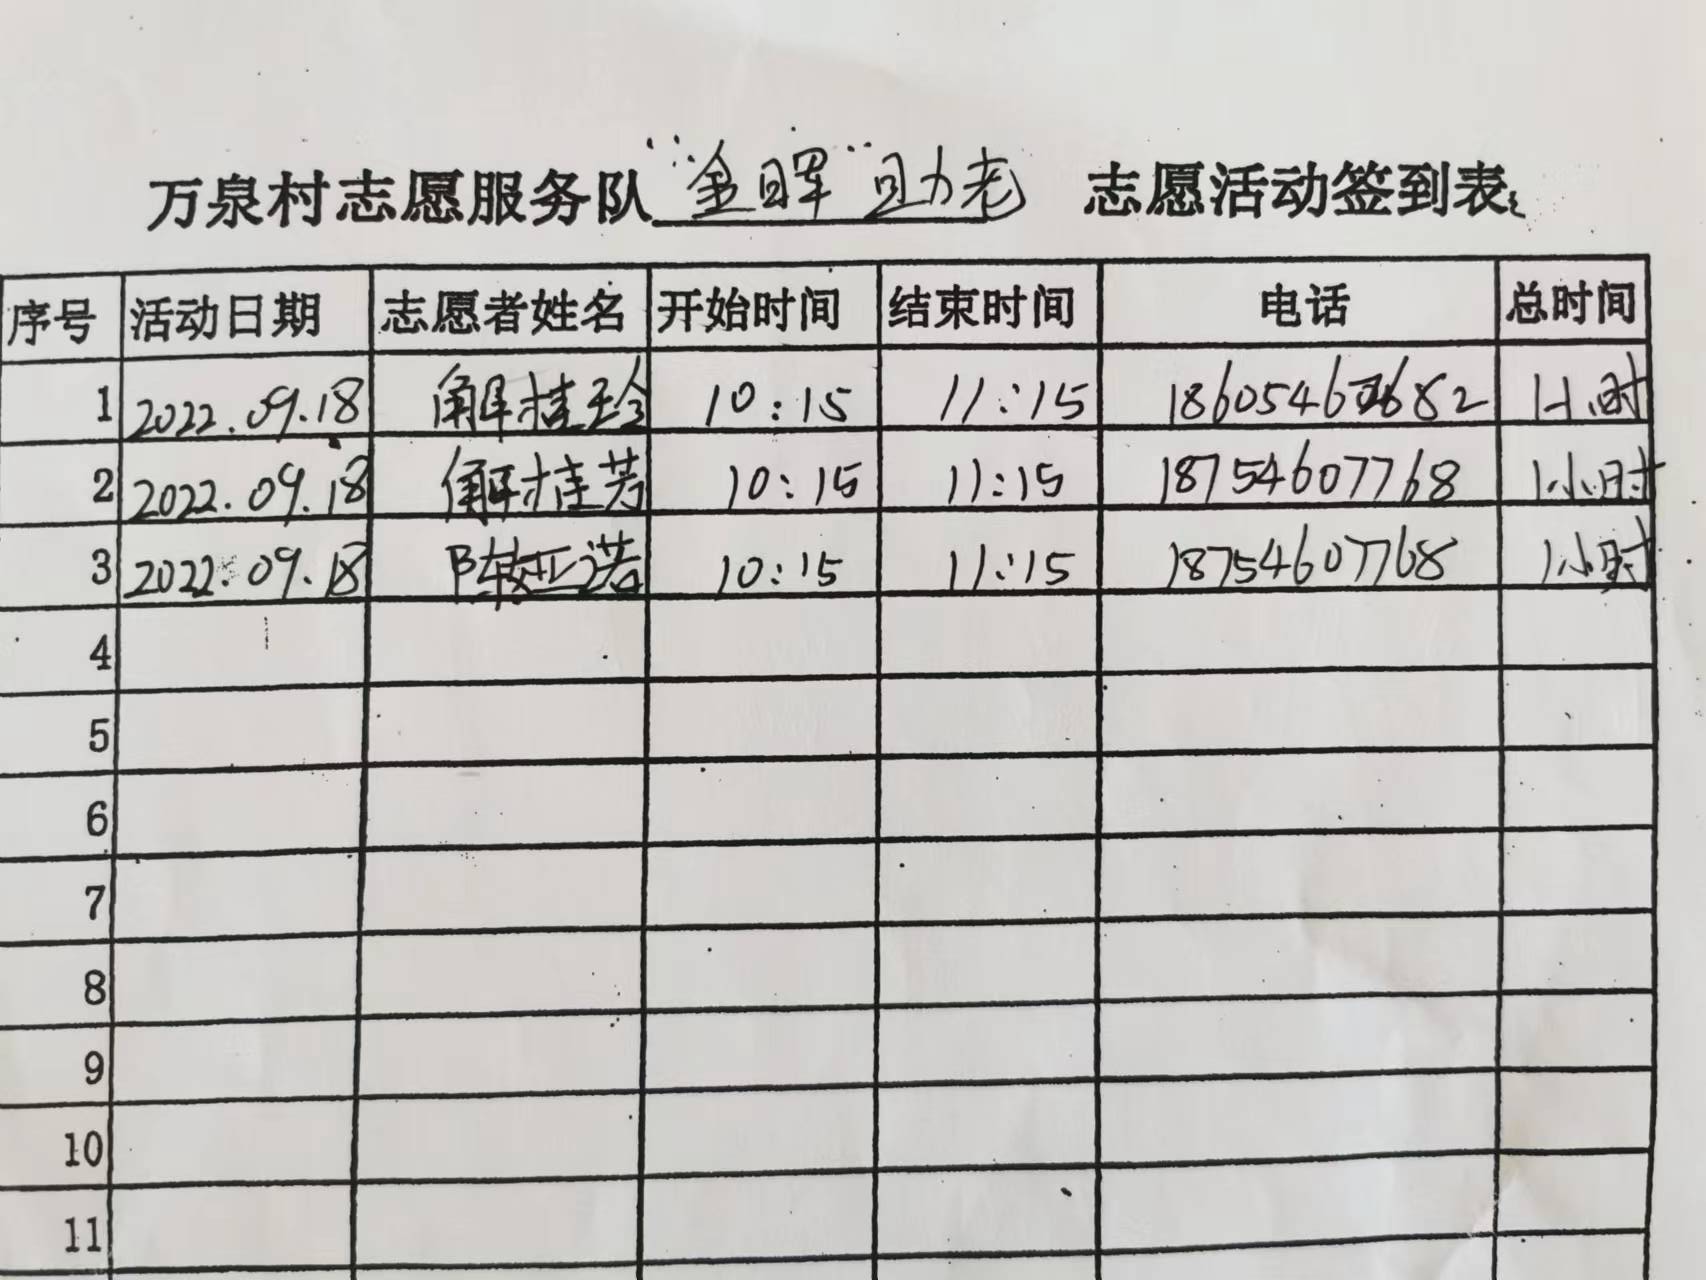 万泉村志愿服务队 "金晖"助老 志愿活动签到表
序号 活动日期 志愿者姓名 开始时间 结束时间 电话 总时间
1 2022.09.18 解桂玲 10:15 11:15 1小时
2 2022.09.18 解桂芳 10:15 11:15 18754607768 1小时
3 2022.09.18 10:15 11:15 18754607768 1小时
4
5
6
7
8
9
10
11